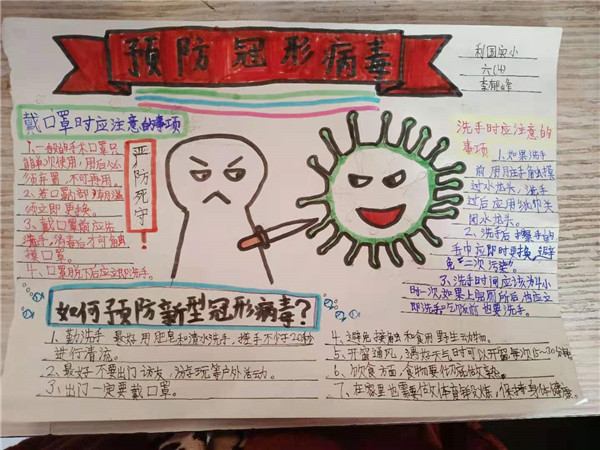 预防冠形病毒
利国实小
六(4)
戴口罩时应注意的事项
1、一般的手术口罩只
能单次使用,用后必
须弃置,不可再用。
须立即更换。
3、戴口罩前应先
洗手,
摸口罩。
4、口罩脱下后应立即洗手。
严防死守!
洗手时应注意的
事项
1、如果洗手
前用手触摸
过水龙头,洗手
过后应用
闭水龙头。
2、洗手后擦手的
手巾应即时更换,避
免“二次污染”。
3、洗手时间应该为4小
时一次,如果上厕所后也应立
即洗手,吃饭前也要洗手。
如何预防新型冠形病毒?
1、勤洗手 最好用肥皂和清水洗手,搓手不少于20秒
进行清洗。
2、最好不要出门访友,游玩等户外活动。
3、出门一定要戴口罩。
4、避免接触和食用野生动物。
5、开窗通风,遇好天气时可以开窗每次15~30分钟
6、饮食方面,食物要做熟。
7、在家里也需要做体育锻炼,保持身体健康。